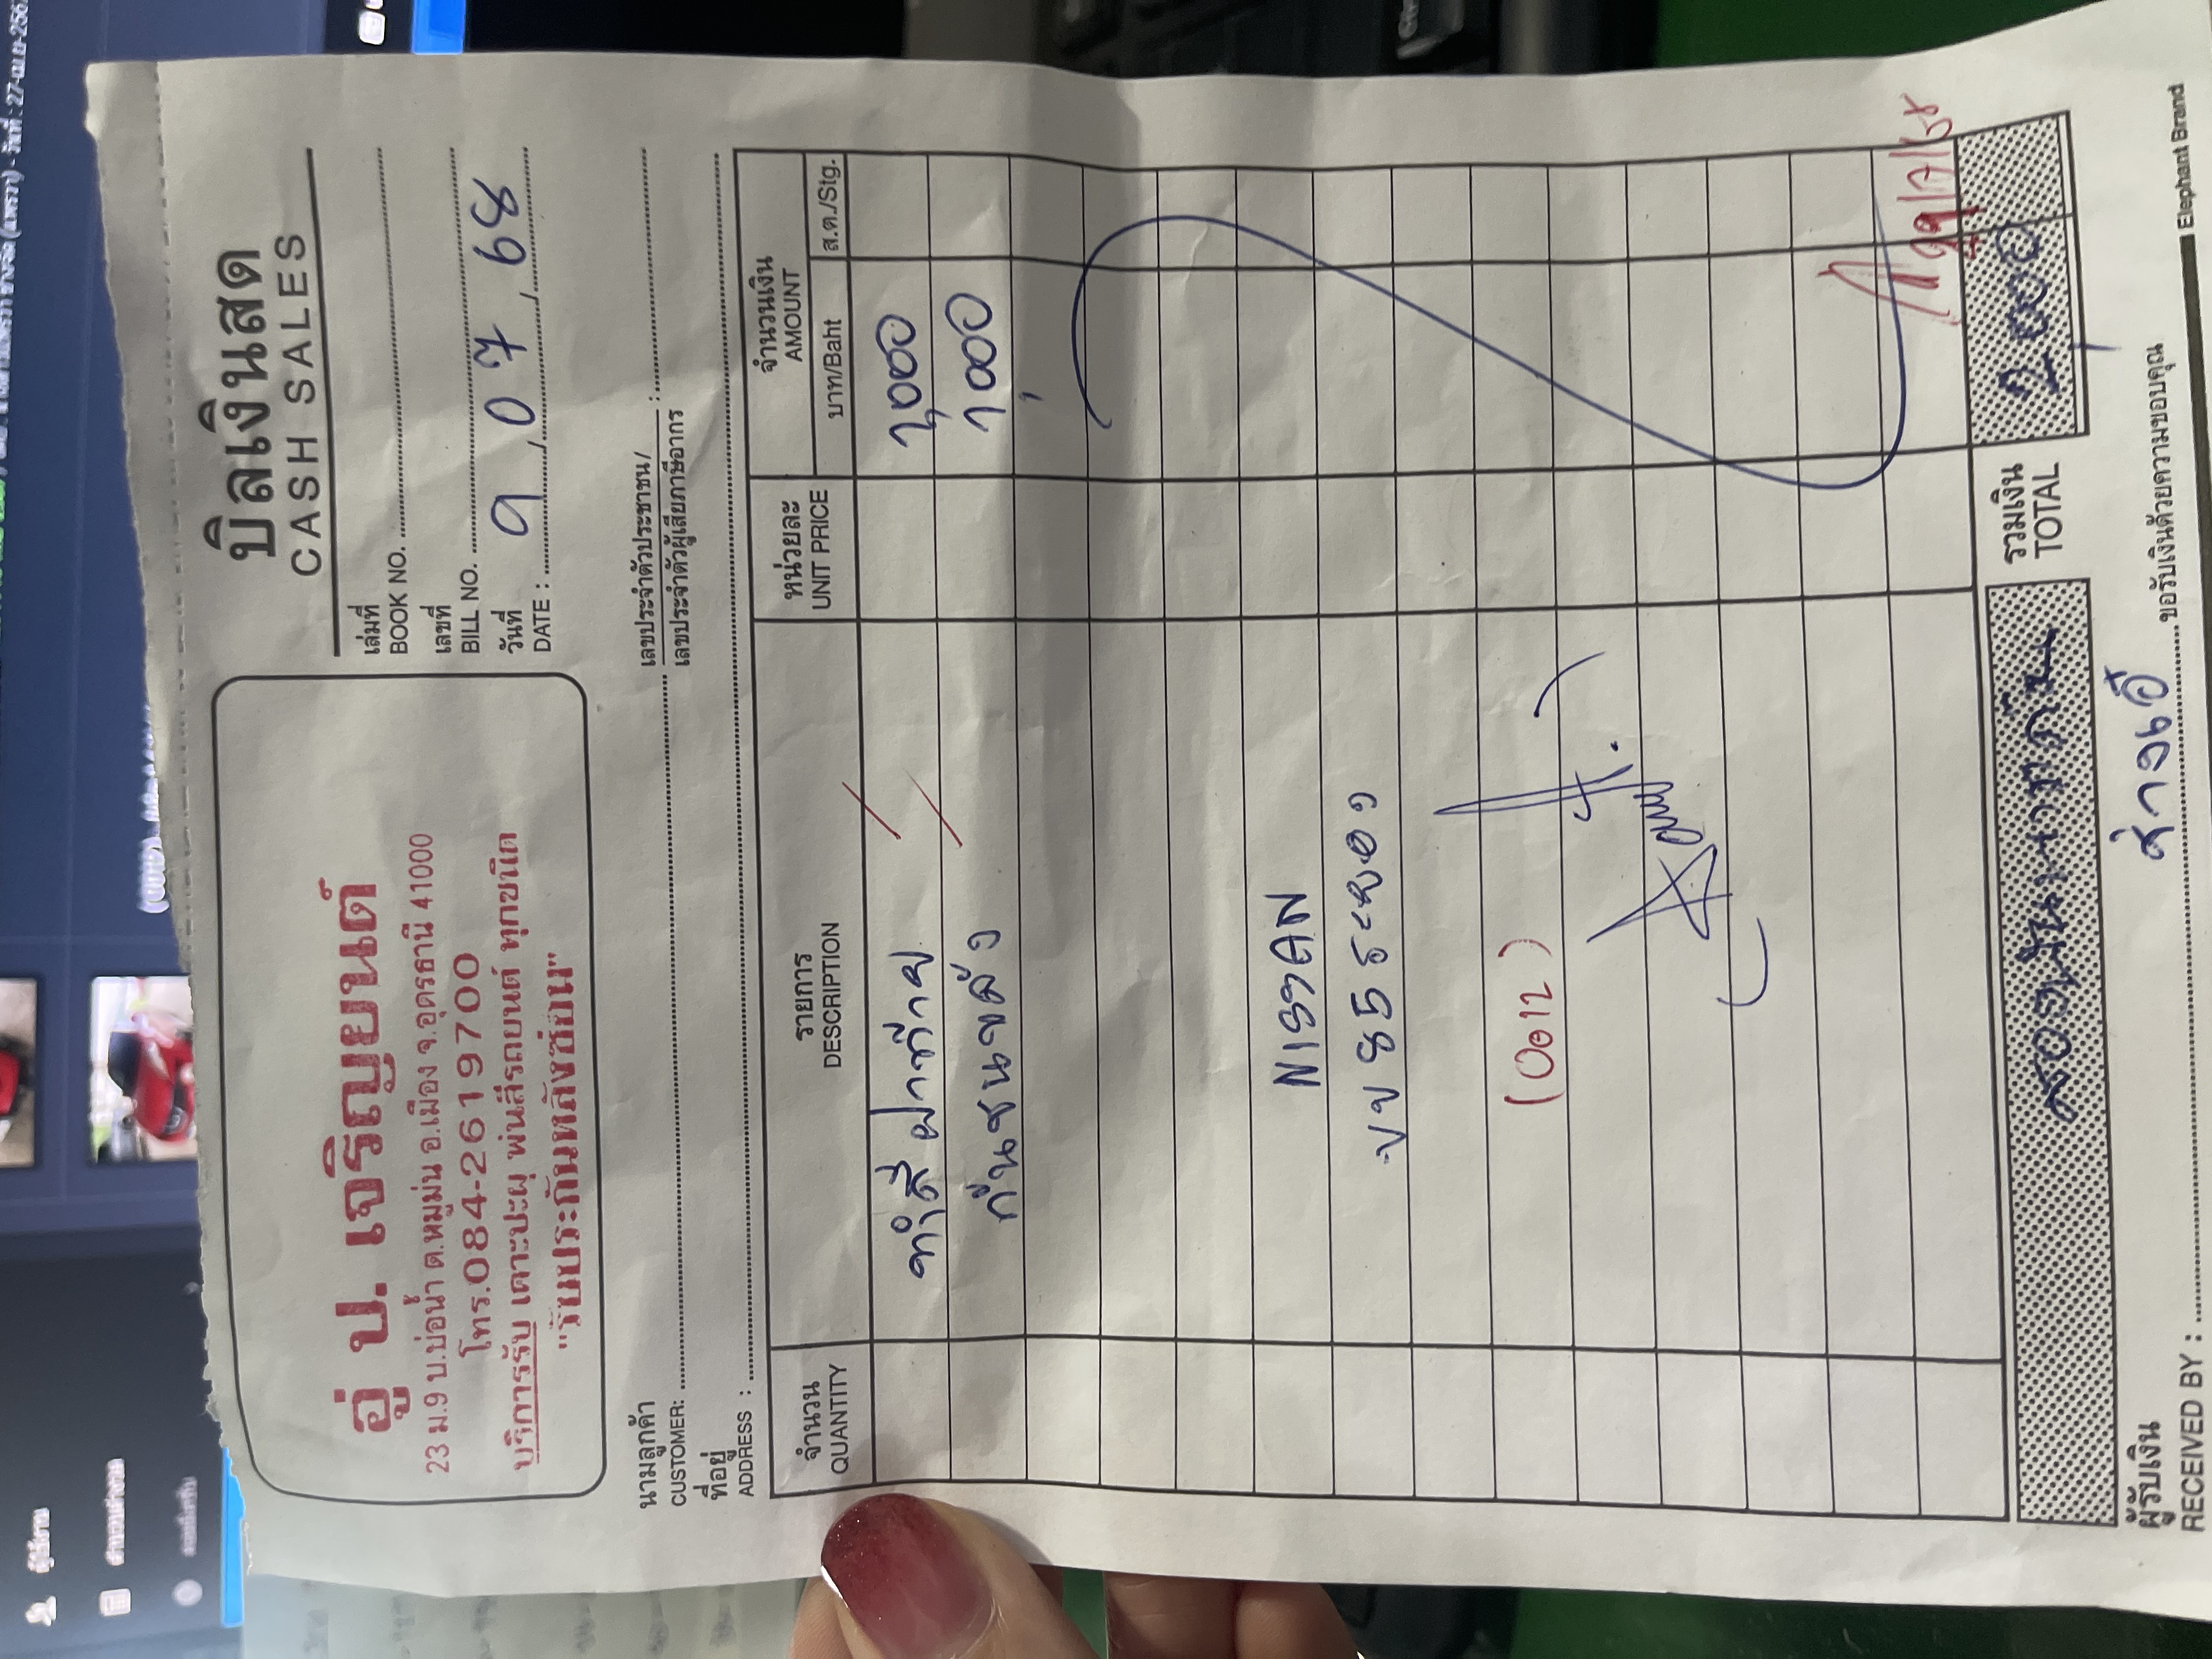 อู่ ป. เจริญยนต์
23 ม.9 บ.บ่อน้ำ ต.หมูม่น อ.เมือง จ.อุดรธานี 41000
โทร.084-2619700
บริการรับ เคาะปะผุ พ่นสีรถยนต์ ทุกชนิด
"รับประกันหลังซ่อม"
บิลเงินสด
CASH SALES
เล่มที่
BOOK NO.
เลขที่
BILL NO.
วันที่
DATE : 9 / 07 / 68
นามลูกค้า
CUSTOMER:
เลขประจำตัวประชาชน/
เลขประจำตัวผู้เสียภาษีอากร :
ที่อยู่
ADDRESS :
จำนวน
QUANTITY
รายการ
DESCRIPTION
หน่วยละ
UNIT PRICE
จำนวนเงิน
AMOUNT
บาท/Baht ส.ต./Stg.
ทำสี ฝาท้าย 1,000
กันชนหลัง 1,000
NISSAN
บบ 855 ระยอง
(0012)
29/7/68
สองพันบาทถ้วน
รวมเงิน
TOTAL
2,000
ผู้รับเงิน
RECEIVED BY :
ขอรับเงินด้วยความขอบคุณ
Elephant Brand